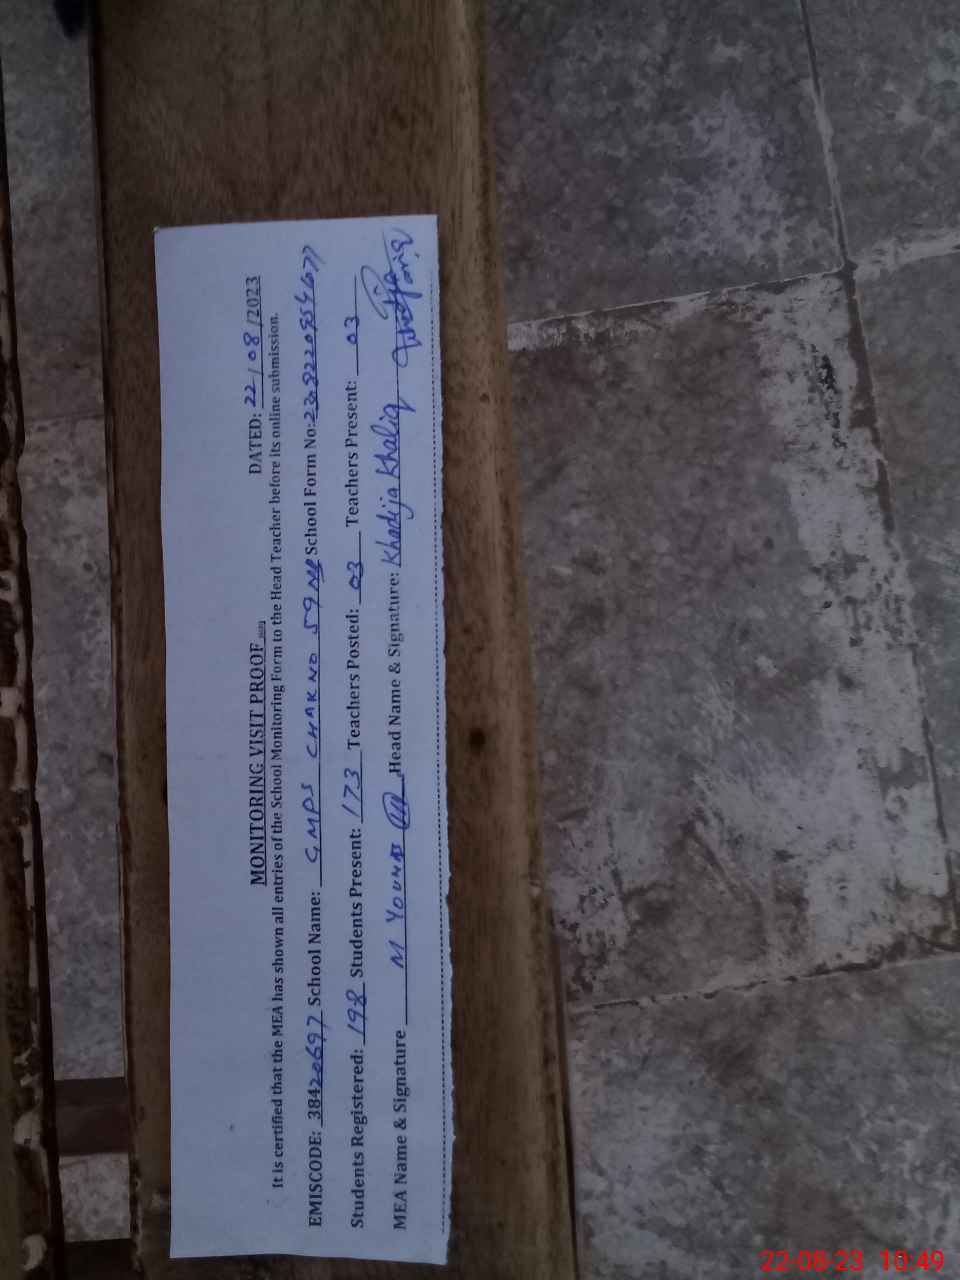 MONITORING VISIT PROOF
DATED: 22/08/2023
It is certified that the MEA has shown all entries of the School Monitoring Form to the Head Teacher before its online submission.
EMISCODE: 38420697 School Name: GMPS CHAK NO 59 School Form No:
Students Registered: 198 Students Present: 173 Teachers Posted: 03 Teachers Present: 03
MEA Name & Signature M Head Name & Signature: Khadija Khaliq
22-08-23 10:49